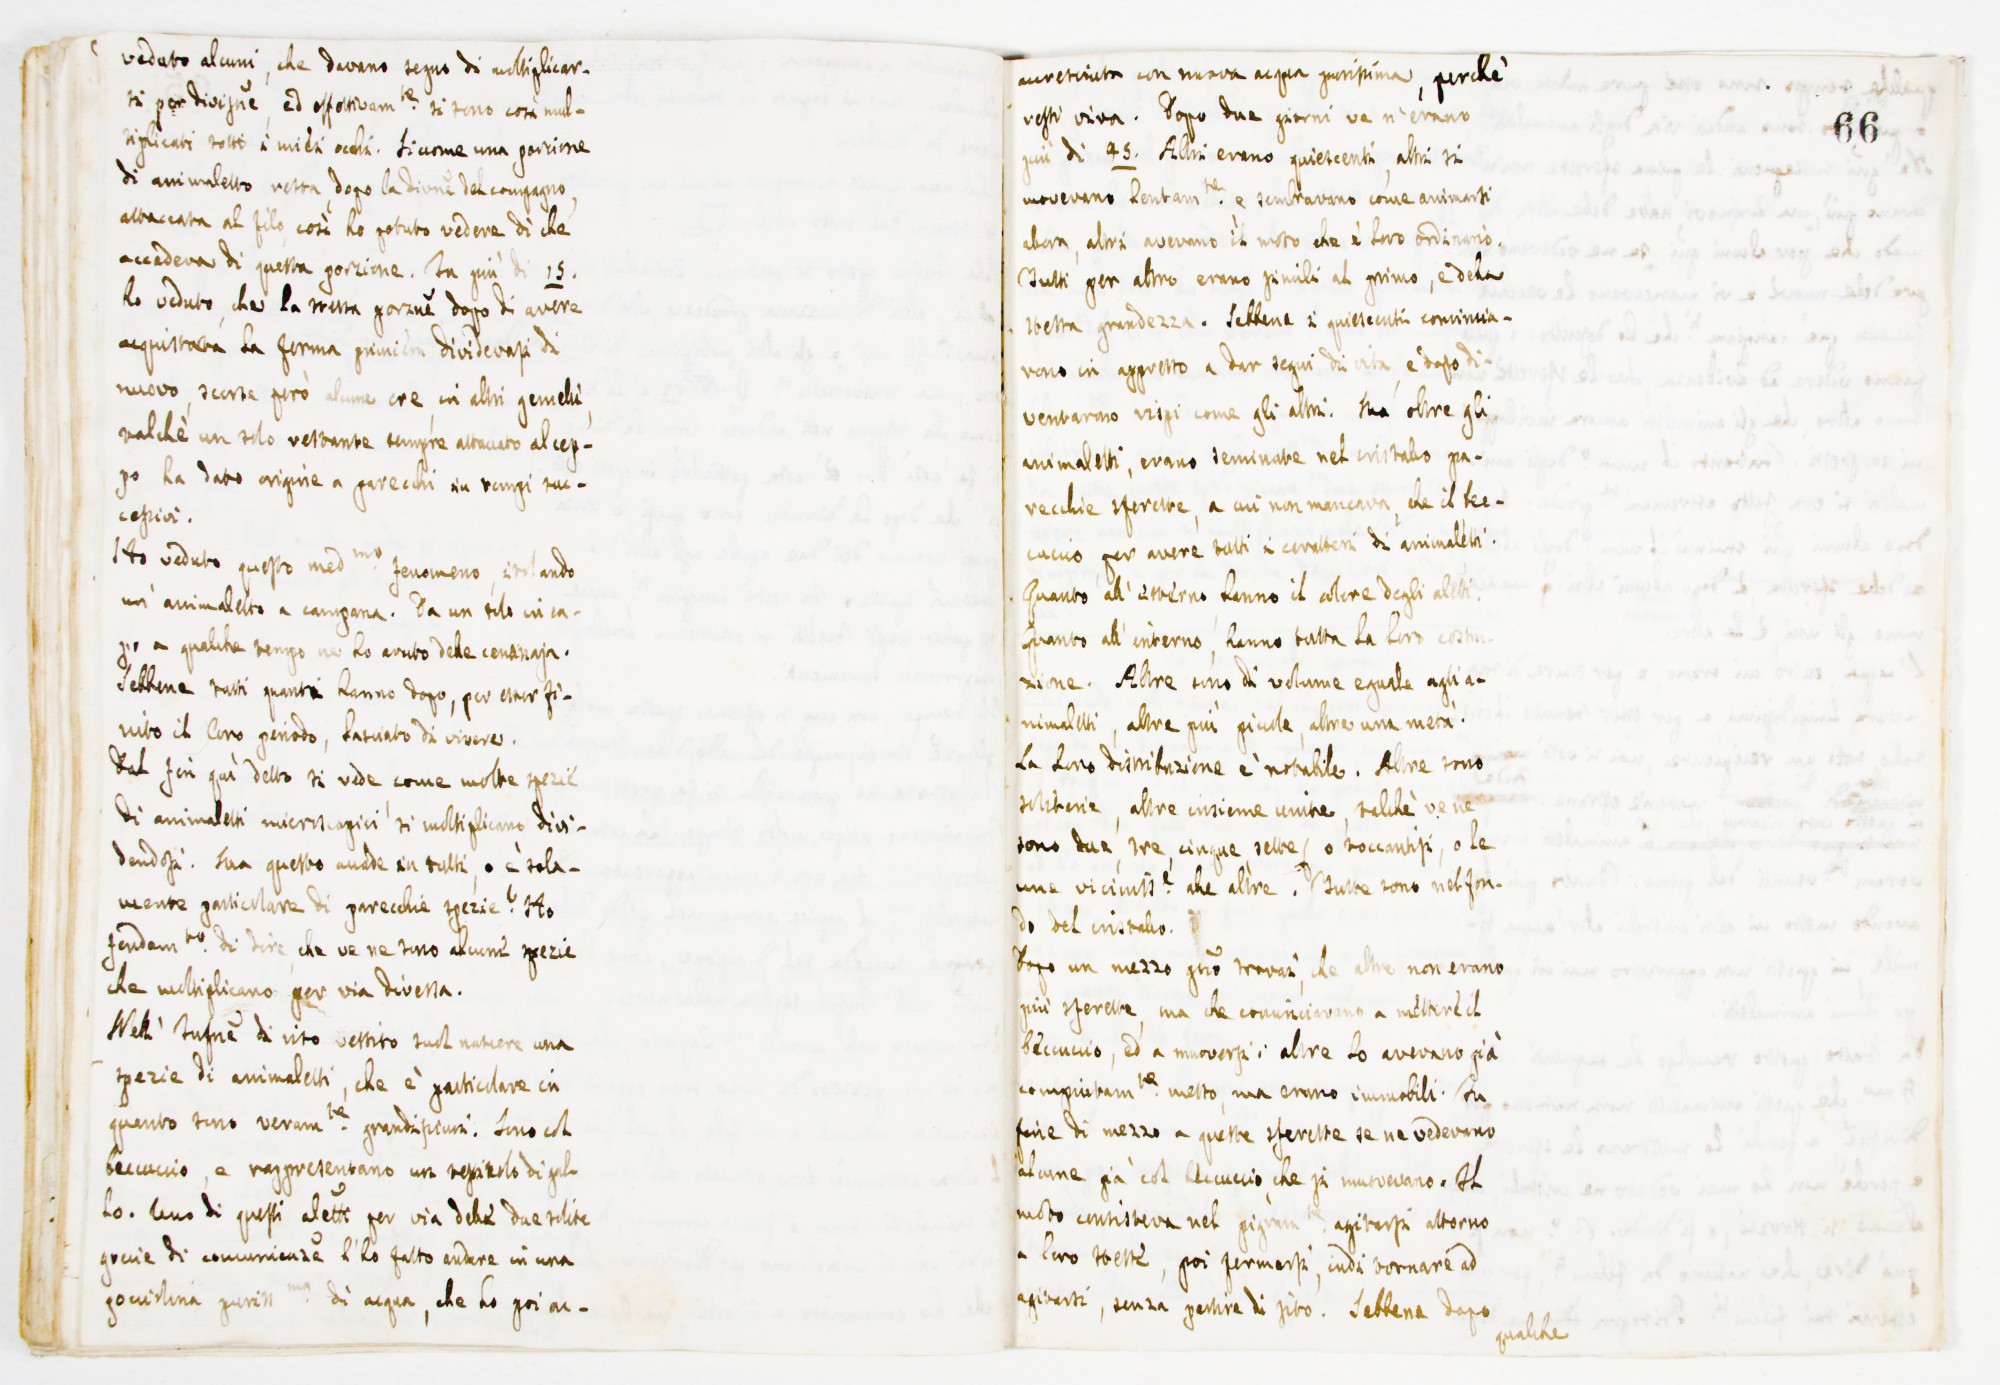 veduto alcuni, che davano segno di moltiplicar-
si per divisne, ed effettivamte si sono così mul-
tiplicati sotto i miei occhi. Siccome una porzione
di animaletto resta, dopo la divisne del compagno,
attaccata al filo, così ho potuto vedere di che
accadeva di questa porzione. In più di 15.
ho veduto, che la stessa porzne dopo di avere
acquistata la forma primiera dividevasi di
nuovo, scorse però alcune ore, in altri gemelli,
talchè un solo restante sempre attaccato al cep-
po ha dato origine a parecchi in tempi suc-
cessivi.
Ho veduto questo medmo fenomeno, isolando
un' animaletto a campana. Da un solo in ca-
po a qualche tempo ne ho avuto delle centinaja.
Sebbene tutti quanti hanno dopo, per esser fi-
nito il loro periodo, lasciato di vivere.
Dal fin quì detto si vede come molte spezie
di animaletti microscopici si moltiplicano divi-
dendosi. Ma questo accade in tutti, o è sola-
mente particolare di parecchie spezie? Ho
fondamto di dire, che ve ne sono alcune spezie
che moltiplicano per via diversa.
Nell' Infusne di riso vestito suol nascere una
spezie di animaletti, che è particolare in
quanto sono veramte grandissimi. Sono col
beccuccio, e rappresentano un testicolo di gal-
lo. Uno di questi aletti per via delle due solite
goccie di comunicanze l'ho fatto andare in una
gocciolina purissma di acqua, che ho poi ac-
66
accresciuta con nuova acqua purissima, perchè
resti viva. Dopo due giorni ve n'erano
più di 45. Altri erano quiescenti, altri si
movevano lentamte e sembravano come animarsi
allora, altri avevano il moto che è loro ordinario.
Tutti per altro erano simili al primo, e della
stessa grandezza. Sebbene i quiescenti comincia-
rono in appresso a dar segni di vita, e dopo di-
ventarono vispi come gli altri. Ma oltre gli
animaletti, erano seminate nel cristallo pa-
recchie sferette, a cui non mancava, che il bec-
cuccio per avere tutti i caratteri di animaletti.
Quanto all' esterno hanno il colore degli aletti.
Quanto all' interno, hanno tutta la loro costru-
zione. Altre sono di volume eguale agli a-
nimaletti, altre più picole, altre una metà.
La loro distribuzione è notabile. Altre sono
solitarie, altre insieme unite, talchè ve ne
sono due, tre, cinque, sette, o toccantisi, o le
une vicinisse alle altre. Tutte sono nel fon-
do del cristallo.
Dopo un mezzo gno trovai, che altre non erano
più sferette, ma che cominciavano a mettere il
beccuccio, ed a muoversi; altre lo avevano già
compiutamte messo, ma erano immobili. In
fine di mezzo a queste sferette se ne vedevano
alcune già col beccuccio, che si muovevano. Il
moto consisteva nel pigramte agitarsi attorno
a loro stesse, poi fermarsi, indi tornare ad
agitarsi, senza partire di sito. Sebbene dopo
qualche